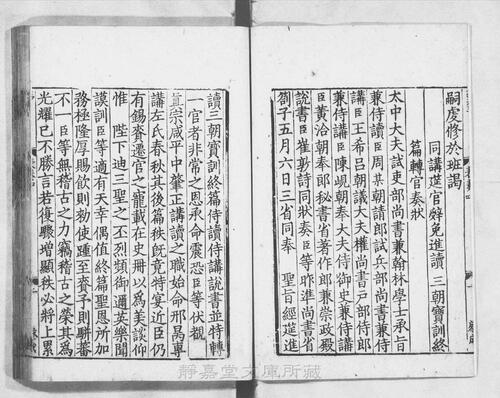 嗣虔修於班謁
同講莚官辭免進讀三朝寶訓終
篇轉官奏狀
太中大夫試吏部尚書兼翰林學士承旨
兼侍讀臣周某朝請郎試兵部尚書兼侍
講臣王希呂朝議大夫權尚書户部侍郎
兼侍講臣陳峴朝奉大夫侍御史兼侍講
臣黃洽朝奉郎秘書省著作郎兼崇政殿
說書臣崔敦詩同狀奏臣等昨準尚書省
劄子五月六日三省同奉聖旨經莚進
讀三朝寶訓終篇侍讀侍講說書並特轉
一官者非常之恩承命震恐臣等伏覩
真宗咸平中肇正講讀之職始命邢昺專
講左氏春秋其後篇秩既竟特宴近臣仍
有錫賚遷官之寵載在史冊以為美談仰
惟陛下迪三聖之丕烈頻御邇英樂聞
謨訓臣等適有天幸偶值終篇聖恩所加
務極隆厚賜飲則勑使踵至賚予則駢蕃
不一臣等無稽古之力竊稽古之榮其為
光耀已不勝言若復驟增顯秩必將上累
靜嘉堂文庫所藏